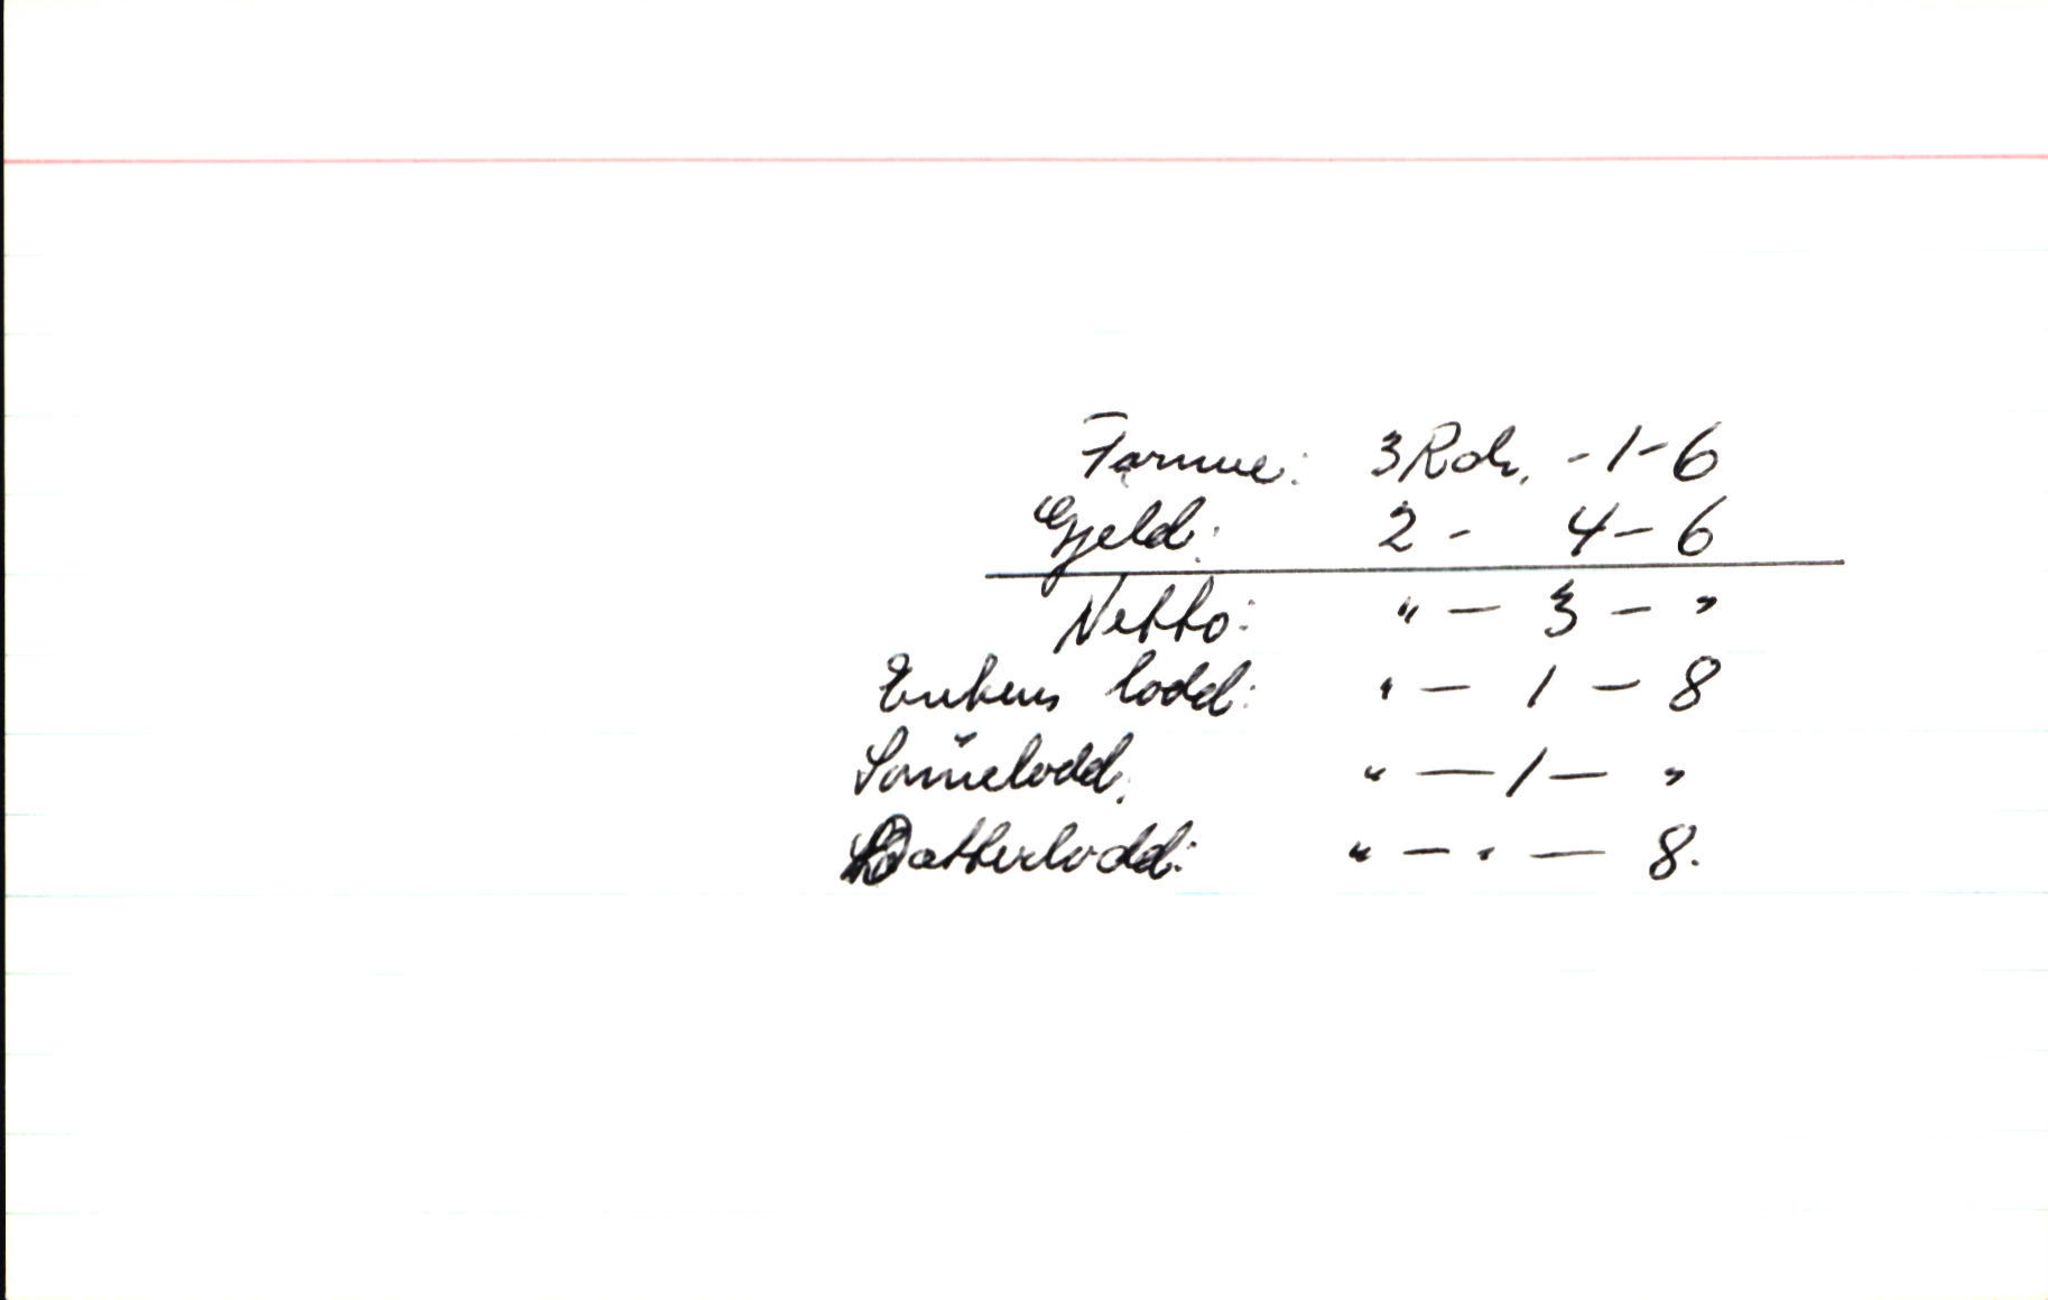 Formue: 3 Rdr. - 1 - 6
Gjeld: 2 - 4 - 6
Netto: " - 3 - "
Enkens lodd: " - 1 - 8
Sønnelodd: " - 1 - "
Datterlodd: " - " - 8.